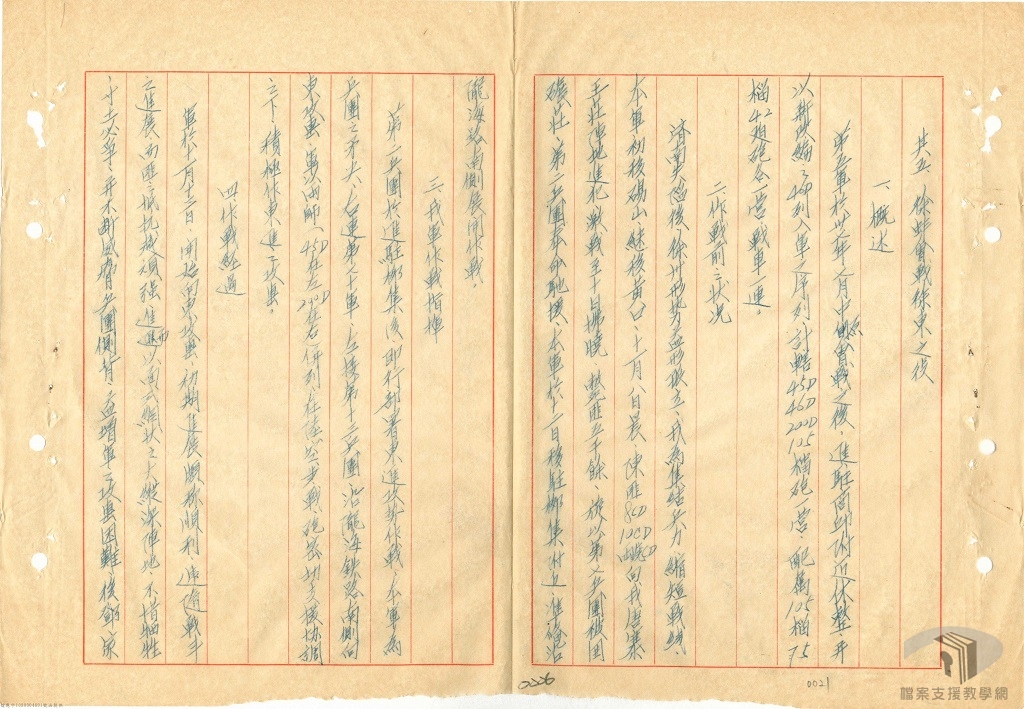 其五 徐蚌會戰徐東之役
一、概述
第五軍於卅七年七月中旬會戰之後，進駐商邱附近休整，并
以新改編之200D列入軍之序列，計轄45D 46D 200D 105榴砲一營、配屬105榴 75
榴 42迫砲各一營戰車一連。
二、作戰前之狀況
濟南失陷後，徐州形勢益形孤立，我為集結兵力，縮短戰線，
本軍初移碭山繼移黃口，十一月八日晨，陳匪8CD 10CD 向我唐寨
王莊陣地進犯激戰至十日拂曉，斃匪五千餘，旋以第七兵團被困
碾莊，第二兵團奉命馳援，本軍於十一日移駐柳集附近，準備沿
隴海路南側展開作戰。
三、我軍作戰指揮
第二兵團於進駐柳集後，即行部署東進攻擊作戰，本軍為
兵團之矛矢、右連第七十軍、左接第十三兵團沿隴海鐵路南側向
東攻擊，軍以兩師（45D在左 200D在右）併列，在陸空步戰砲密切支援協調
之下，積極作東進之攻擊。
四、作戰經過
軍於十一月十三日，開始向東攻擊，初期進展頗稱順利，連隨戰鬥
之進展，而匪之抵抗越頑強，進而以閃式網狀之大縱深陣地，不惜犧牲
寸土必爭，并不斷威脅兵團側背，益增軍之攻擊困難，後鄧、
0026
0021
檔案支援教學網